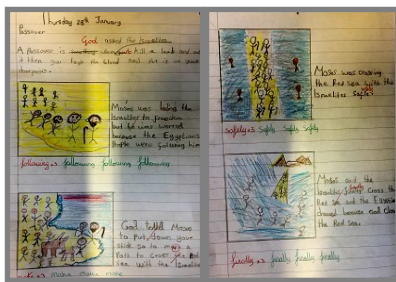 Thursday 28th January
Passover
God asked the Israelites
A Passover is kill a lamb and eat
it then you keep the blood and Put it on your
doorposts.
Moses was
Israelites to freedom
but he was worried
because the Egyptians
People were following him
following following following
God told Moses
to Put down your
stick so to
Path to cross Red
sea with the Israelites
make make make
Moses was crossing
the Red sea with the
Israelites Safely
safely Safly Safly Safly
Moses and the
Israelites cross the
Red sea and the Egyptian
drowed because God close
the Red sea.
finally finally finally finally